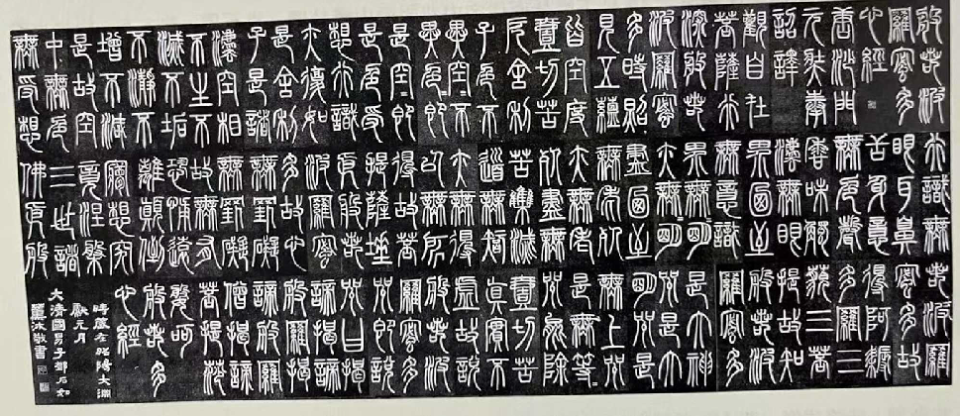 般若波
羅蜜多
心經
唐沙門
元奘奉
詔譯
觀自在
菩薩行
深般若
波羅蜜
多時照
見五蘊
皆空度
壹切苦
厄舍利
子色不
異空空不
異色色即
是空空即
是色受
想行識
亦復如
是舍利
子是諸
法空相
不生不
滅不垢
不淨不
增不減
是故空
中無色
無受想
行識無
眼耳鼻
舌身意
無色聲
香味觸
法無眼
界乃至
無意識
界無無明
亦無無明
盡乃至
無老死
亦無老
死盡無
苦集滅
道無智
亦無得
以無所
得故菩
提薩埵
依般若
波羅蜜
多故心
無罣礙
無罣礙
故無有
恐怖遠
離顛倒
夢想究
竟涅槃
三世諸
佛依般
若波羅
蜜多故
得阿耨
多羅三
藐三菩
提故知
般若波
羅蜜多
是大神
咒是大
明咒是
無上咒
是無等等
咒能除
壹切苦
真實不
虛故說
般若波
羅蜜多
咒即說
咒曰揭
諦揭諦
般羅揭
諦般羅
僧揭諦
菩提薩
婆訶
般若多
心經
時歲在昭陽大淵
獻元月
大清國男子鄧石如
薰沐敬書